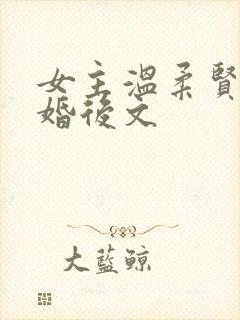 女主溫柔賢
婚後文
大藍鯨